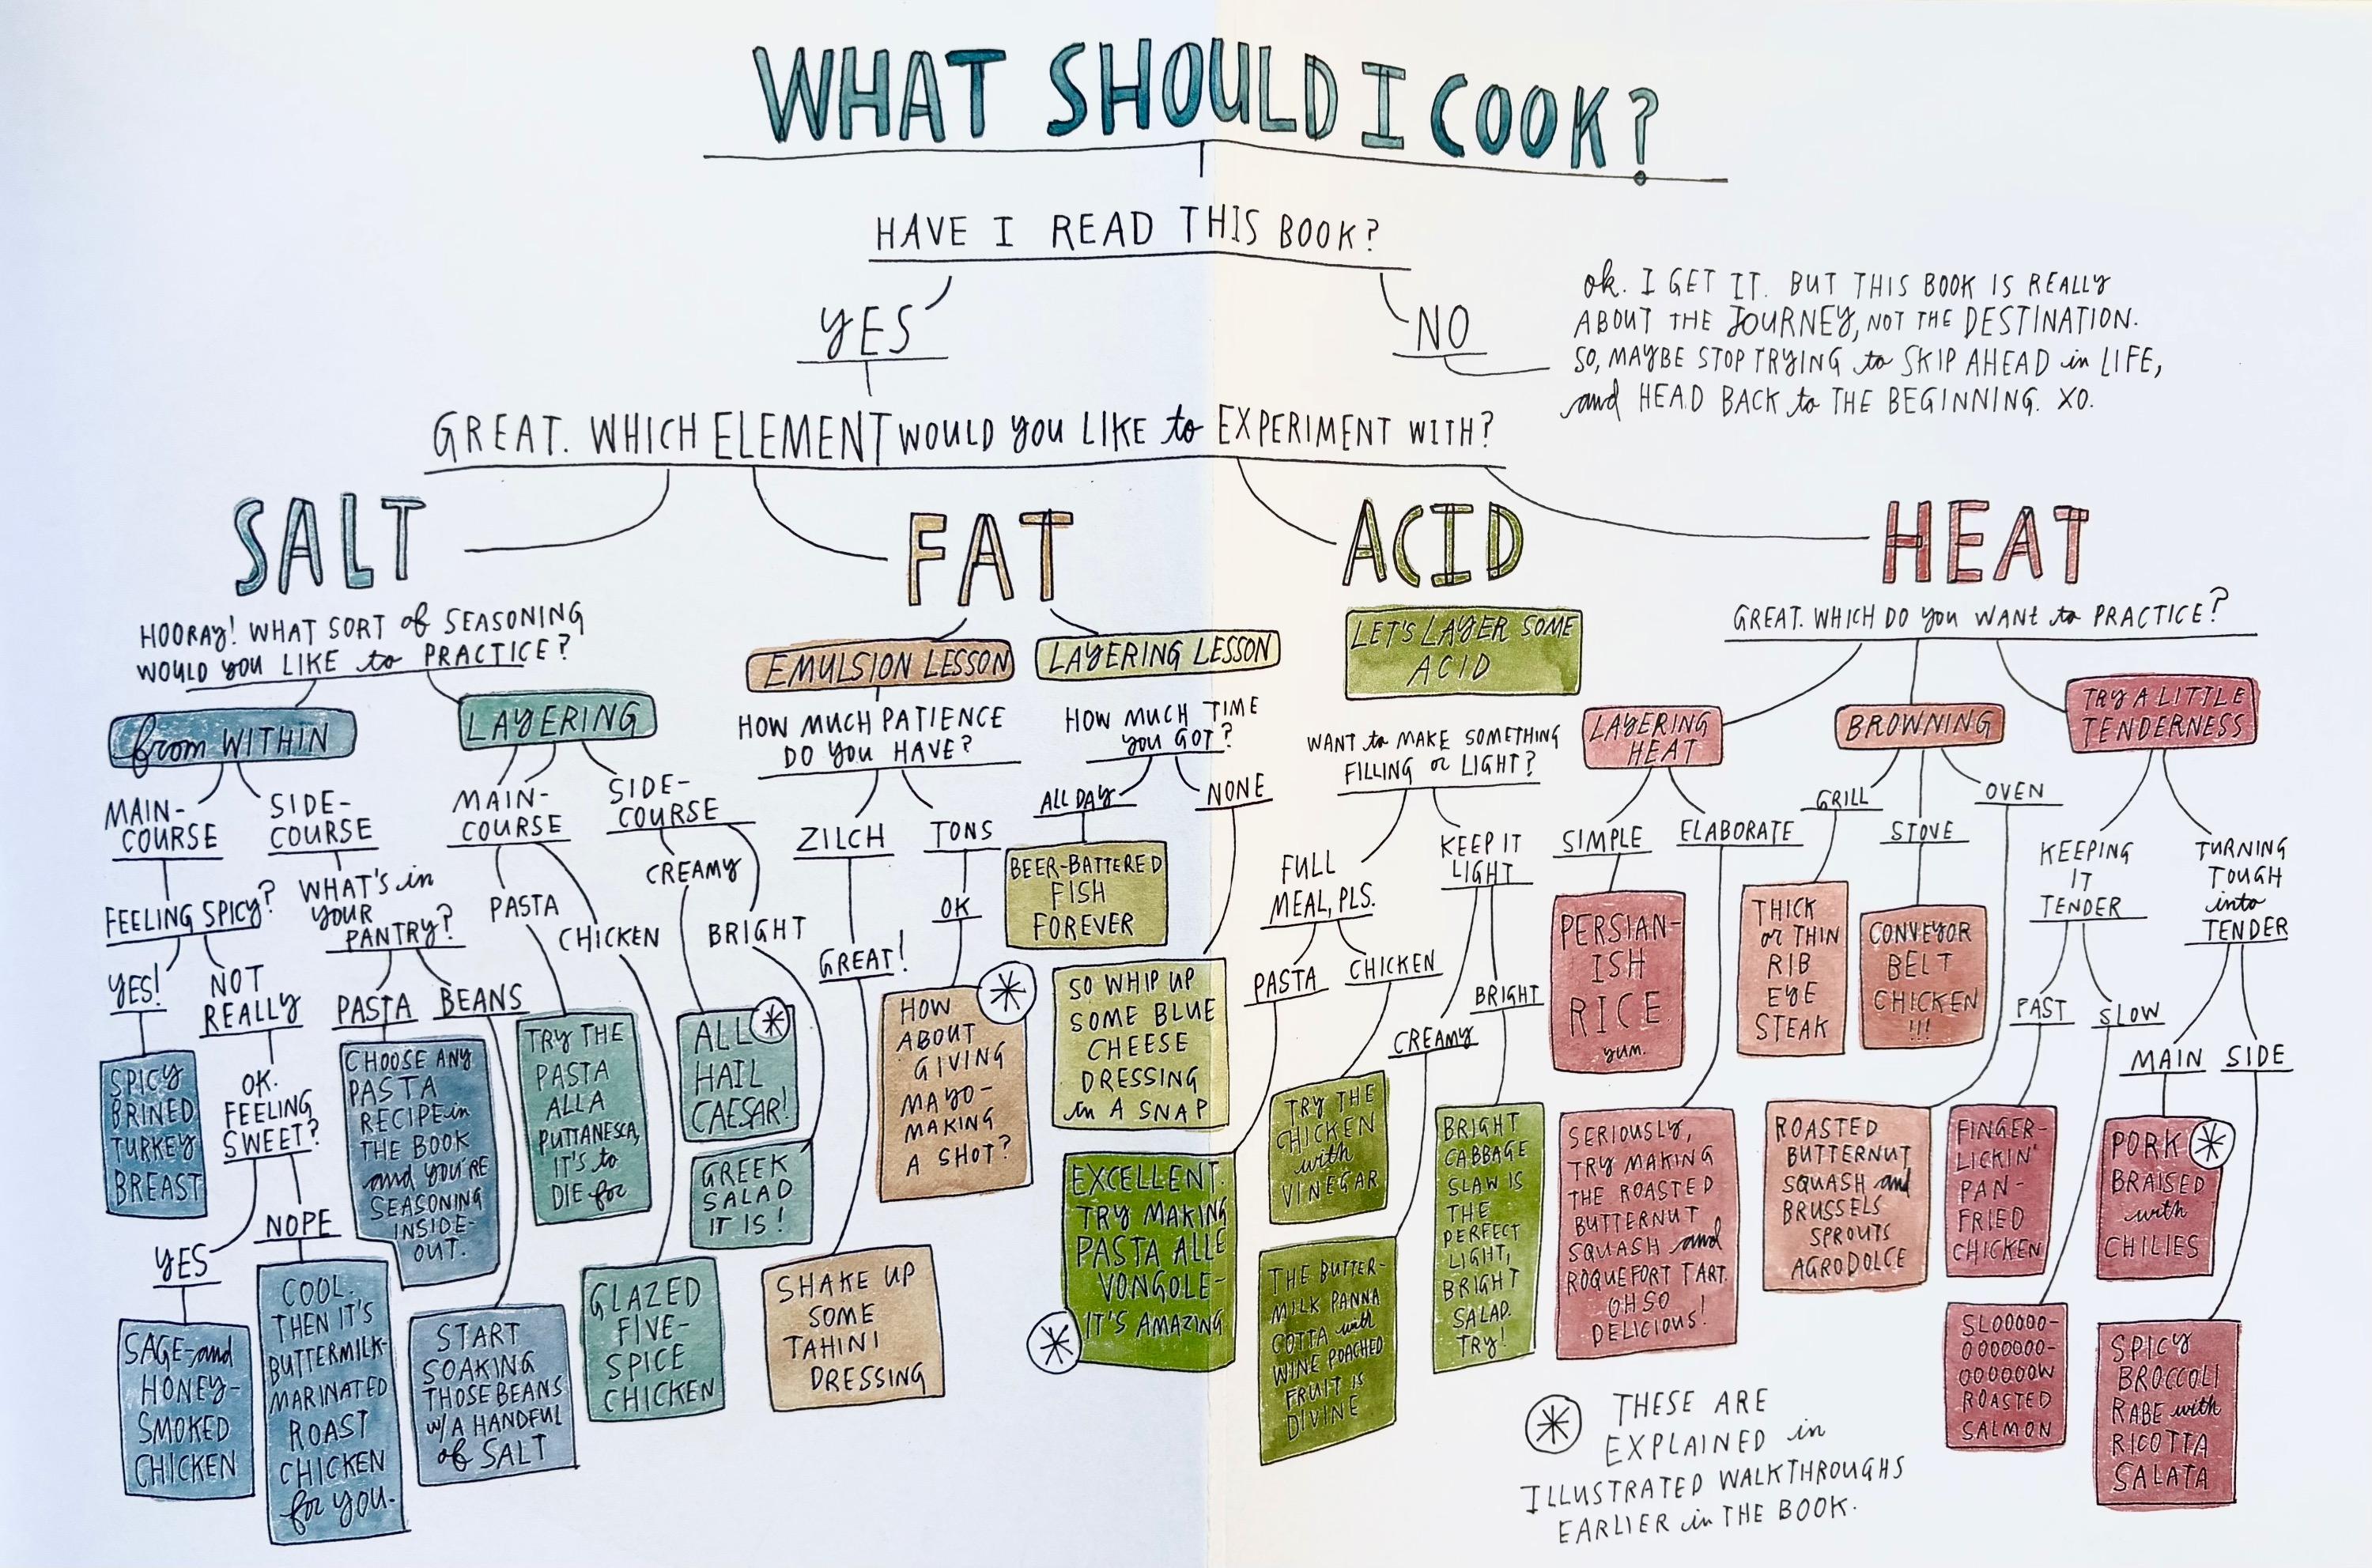 WHAT SHOULD I COOK?
HAVE I READ THIS BOOK?
YES
NO
ok. I GET IT. BUT THIS BOOK IS REALLY
ABOUT THE JOURNEY, NOT THE DESTINATION.
SO, MAYBE STOP TRYING to SKIP AHEAD in LIFE,
and HEAD BACK to THE BEGINNING. XO.
GREAT. WHICH ELEMENT WOULD YOU LIKE to EXPERIMENT WITH?
SALT
HOORAY! WHAT SORT of SEASONING
WOULD YOU LIKE to PRACTICE?
from WITHIN
MAIN-
COURSE
FEELING SPICY?
YES!
SPICY
BRINED
TURKEY
BREAST
NOT
REALLY
OK.
FEELING
SWEET?
YES
SAGE-and
HONEY-
SMOKED
CHICKEN
NOPE
COOL.
THEN IT'S
BUTTERMILK-
MARINATED
ROAST
CHICKEN
for YOU.
SIDE-
COURSE
WHAT'S in
YOUR
PANTRY?
PASTA
CHOOSE ANY
PASTA
RECIPE in
THE BOOK
and YOU'RE
SEASONING
INSIDE-
OUT.
BEANS
START
SOAKING
THOSE BEANS
W/A HANDFUL
of SALT
LAYERING
MAIN-
COURSE
PASTA
TRY THE
PASTA
ALLA
PUTTANESCA,
IT'S to
DIE for
CHICKEN
GLAZED
FIVE-
SPICE
CHICKEN
SIDE-
COURSE
CREAMY
ALL
HAIL
CAESAR!
BRIGHT
GREEK
SALAD
IT IS!
FAT
EMULSION LESSON
HOW MUCH PATIENCE
DO YOU HAVE?
ZILCH
GREAT!
SHAKE UP
SOME
TAHINI
DRESSING
TONS
OK
HOW
ABOUT
GIVING
MAYO-
MAKING
A SHOT?
LAYERING LESSON
HOW MUCH TIME
YOU GOT?
ALL DAY
BEER-BATTERED
FISH
FOREVER
NONE
SO WHIP UP
SOME BLUE
CHEESE
DRESSING
in A SNAP
ACID
LET'S LAYER SOME
ACID
WANT to MAKE SOMETHING
FILLING or LIGHT?
FULL
MEAL, PLS.
PASTA
EXCELLENT.
TRY MAKING
PASTA ALLE
VONGOLE-
IT'S AMAZING
CHICKEN
TRY THE
CHICKEN
with
VINEGAR
KEEP IT
LIGHT
CREAMY
THE BUTTER-
MILK PANNA
COTTA with
WINE POACHED
FRUIT IS
DIVINE
BRIGHT
BRIGHT
CABBAGE
SLAW IS
THE
PERFECT
LIGHT,
BRIGHT
SALAD.
TRY!
HEAT
GREAT. WHICH DO YOU WANT to PRACTICE?
LAYERING
HEAT
SIMPLE
PERSIAN-
ISH
RICE
yum.
ELABORATE
SERIOUSLY,
TRY MAKING
THE ROASTED
BUTTERNUT
SQUASH and
ROQUEFORT TART.
OH SO
DELICIOUS!
BROWNING
GRILL
THICK
or THIN
RIB
EYE
STEAK
STOVE
CONVEYOR
BELT
CHICKEN
!!!
OVEN
ROASTED
BUTTERNUT
SQUASH and
BRUSSELS
SPROUTS
AGRODOLCE
TRY A LITTLE
TENDERNESS
KEEPING
IT
TENDER
FAST
FINGER-
LICKIN'
PAN-
FRIED
CHICKEN
SLOW
SLOOOOO-
OOOOOOO-
OOOOOOW
ROASTED
SALMON
TURNING
TOUGH
into
TENDER
MAIN
PORK
BRAISED
with
CHILIES
SIDE
SPICY
BROCCOLI
RABE with
RICOTTA
SALATA
THESE ARE
EXPLAINED in
ILLUSTRATED WALKTHROUGHS
EARLIER in THE BOOK.